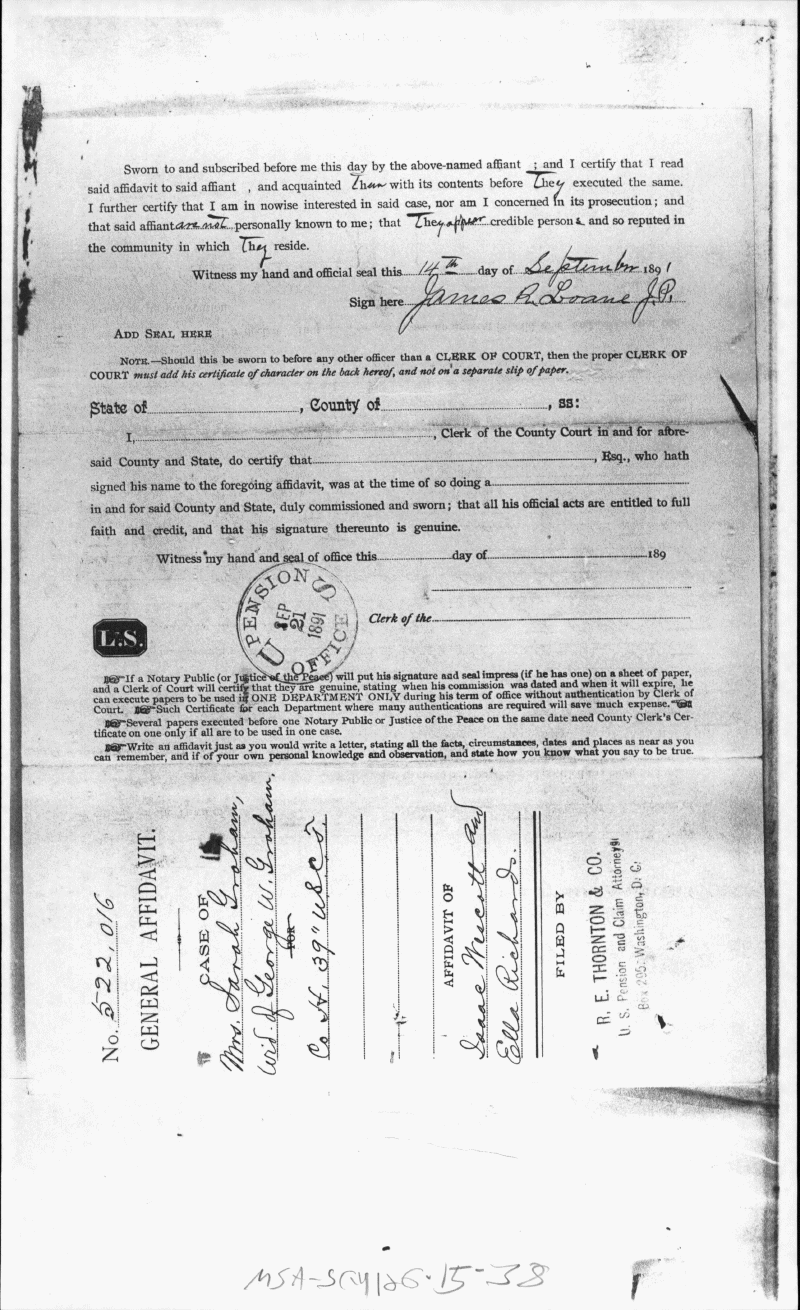 Sworn to and subscribed before me this day by the above-named affiant ; and I certify that I read
said affidavit to said affiant , and acquainted them with its contents before They executed the same.
I further certify that I am in nowise interested in said case, nor am I concerned in its prosecution; and
that said affiant are not personally known to me; that They appear credible persons and so reputed in
the community in which They reside.
Witness my hand and official seal this 14th day of September 1891
Sign here James R. Loane J.P.
ADD SEAL HERE
NOTE.—Should this be sworn to before any other officer than a CLERK OF COURT, then the proper CLERK OF
COURT must add his certificate of character on the back hereof, and not on a separate slip of paper.
State of , County of , ss:
I, , Clerk of the County Court in and for afore-
said County and State, do certify that , Esq., who hath
signed his name to the foregoing affidavit, was at the time of so doing a
in and for said County and State, duly commissioned and sworn; that all his official acts are entitled to full
faith and credit, and that his signature thereunto is genuine.
Witness my hand and seal of office this day of 189
Clerk of the
U S PENSION OFFICE
SEP
21
1891
L.S.
If a Notary Public (or Justice of the Peace) will put his signature and seal impress (if he has one) on a sheet of paper,
and a Clerk of Court will certify that they are genuine, stating when his commission was dated and when it will expire, he
can execute papers to be used in ONE DEPARTMENT ONLY during his term of office without authentication by Clerk of
Court. Such Certificate for each Department where many authentications are required will save much expense.
Several papers executed before one Notary Public or Justice of the Peace on the same date need County Clerk's Cer-
tificate on one only if all are to be used in one case.
Write an affidavit just as you would write a letter, stating all the facts, circumstances, dates and places as near as you
can remember, and if of your own personal knowledge and observation, and state how you know what you say to be true.
No. 522,016
GENERAL AFFIDAVIT.
CASE OF
Mrs. Sarah Graham,
Wid. of George W. Graham,
FOR
Co H, 39" USCT
AFFIDAVIT OF
Isaac Wescott and
Ella Richards.
FILED BY
R. E. THORNTON & CO.
U. S. Pension and Claim Attorneys
Box 295, Washington, D. C.
MSA-SC4126-15-38